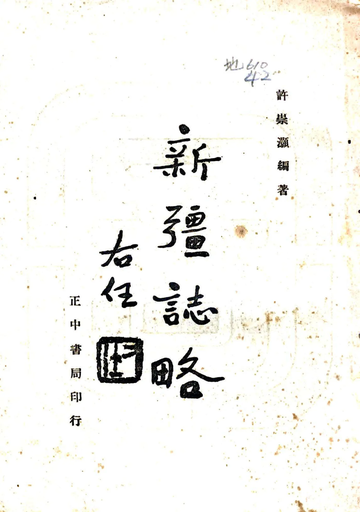 地610
42
許崇灝編著
新疆誌略
右任
正中書局印行